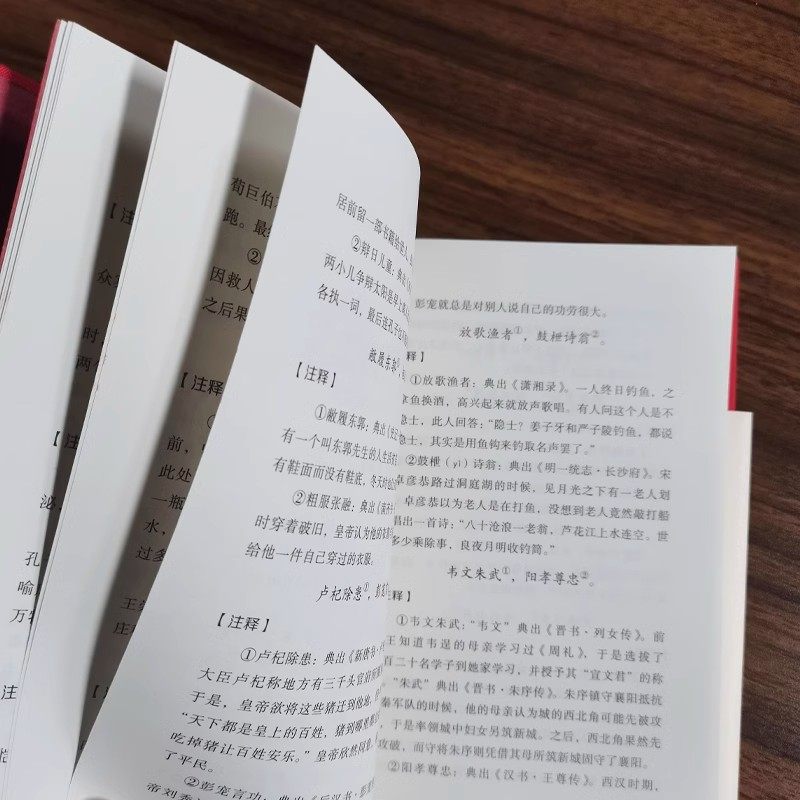 【注
众
时，
两个
【注
泌
孔
喻
万
注
荀巨伯
跑。最
②
因救人
之后果
【注释】
前，
此处
一瓶
水，
过多
王
庄
居前留一部书籍给
②辩日儿童：典出《
两小儿争辩太阳是早
各执一词，最后连孔子
敝履东郭①，
【注释】
①敝履东郭：典出《
有一个叫东郭先生的人生活
有鞋面而没有鞋底，冬天时
②粗服张融：典出《南齐
时穿着破旧，皇帝认为他的
给他一件自己穿过的衣服。
卢杞除患①，彭宠
【注释】
①卢杞除患：典出《新唐书·卢
大臣卢杞称地方有三千头官
于是，皇帝欲将这些猪迁到他地，
“天下都是皇上的百姓，猪到哪里
吃掉猪让百姓安乐。”皇帝欣然同意，
了平民。
②彭宠言功：典出《后汉书·彭宠
帝刘秀
彭宠就总是对别人说自己的功劳很大。
放歌渔者①，鼓枻诗翁②。
释】
①放歌渔者：典出《潇湘录》。一人终日钓鱼，之
拿鱼换酒，高兴起来就放声歌唱。有人问这个人是不
隐士，此人回答：“隐士？姜子牙和严子陵钓鱼，都说
隐士，其实是用鱼钩来钓取名声罢了。”
②鼓枻（yì）诗翁：典出《明一统志·长沙府》。宋
卓彦恭路过洞庭湖的时候，见月光之下有一老人到
卓彦恭以为老人是在打鱼，没想到老人竟然敲打船
唱出一首诗：“八十沧浪一老翁，芦花江上水连空。世
多少乘除事，良夜月明收钓筒。”
韦文朱武①，阳孝尊忠②。
释】
①韦文朱武：“韦文”典出《晋书·列女传》。前
王知道韦逞的母亲学习过《周礼》，于是选拔了
百二十名学子到她家学习，并授予其“宣文君”的称
“朱武”典出《晋书·朱序传》。朱序镇守襄阳抵抗
秦军队的时候，他的母亲认为城的西北角可能先被攻
于是率领城中妇女另筑新城。之后，西北角果然先
攻破，而守将朱序则凭借其母所筑新城固守了襄阳。
②阳孝尊忠：典出《汉书·王尊传》。西汉时期，